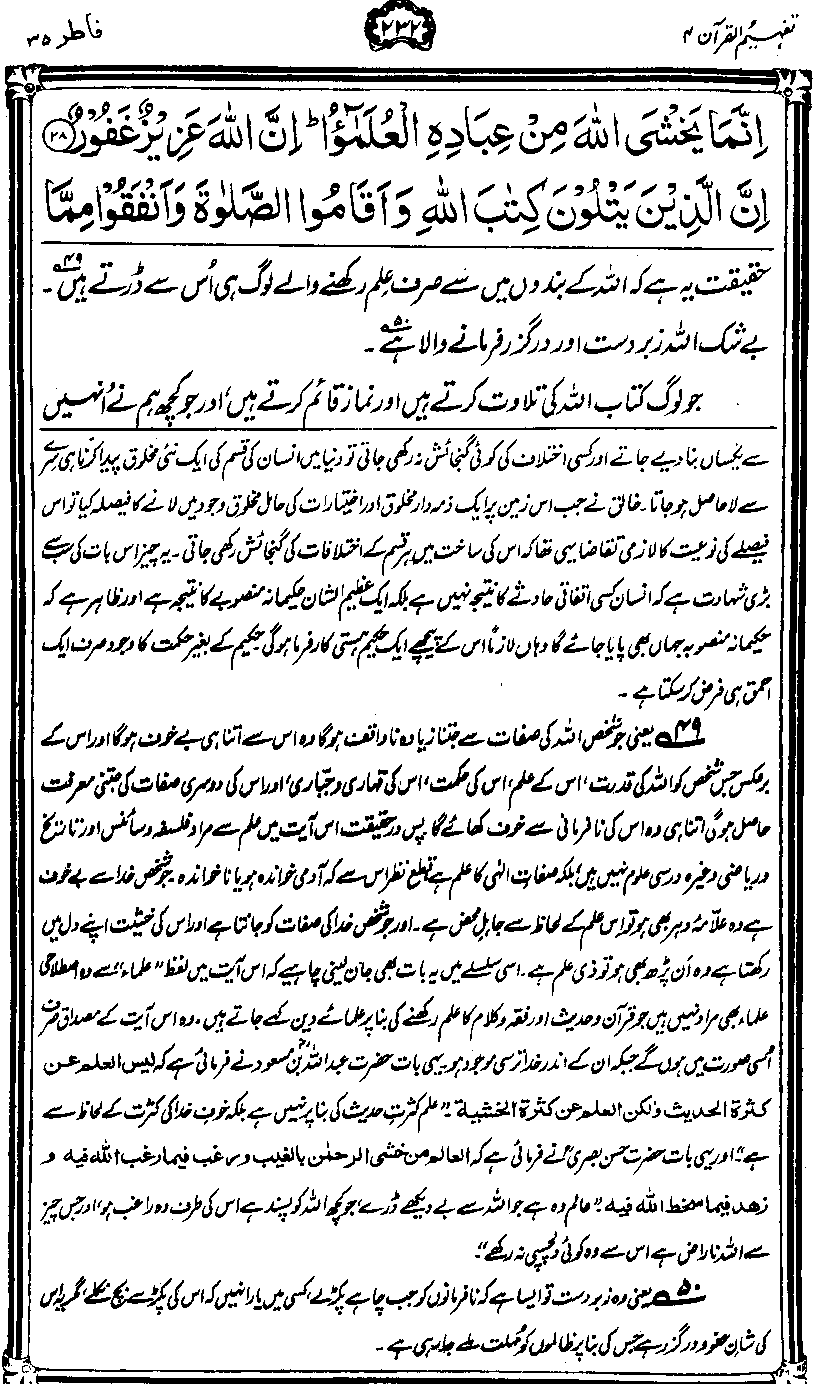 تفہیم القرآن ۴
۲۳۲
فاطر ۳۵
اِنَّمَا يَخْشَى اللّٰهَ مِنْ عِبَادِهِ الْعُلَمٰٓؤُا ؕ اِنَّ اللّٰهَ عَزِيْزٌ غَفُوْرٌ ۲۸
اِنَّ الَّذِيْنَ يَتْلُوْنَ كِتٰبَ اللّٰهِ وَاَقَامُوا الصَّلٰوةَ وَاَنْفَقُوْا مِمَّا
حقیقت یہ ہے کہ اللہ کے بندوں میں سے صرف علم رکھنے والے لوگ ہی اُس سے ڈرتے ہیں۴۹۔
بے شک اللہ زبردست اور درگزر فرمانے والا ہے۵۰۔
جو لوگ کتاب اللہ کی تلاوت کرتے ہیں اور نماز قائم کرتے ہیں، اور جو کچھ ہم نے اُنہیں
سے یکساں بنا دیے جاتے اور کسی اختلاف کی کوئی گنجائش نہ رکھی جاتی تو دنیا میں انسان کی قسم کی ایک نئی مخلوق پیدا کرنا ہی سرے
سے لاحاصل ہو جاتا۔ خالق نے جب اس زمین پر ایک ذمہ دار مخلوق اور اختیارات کی حامل مخلوق وجود میں لانے کا فیصلہ کیا تو اس
فیصلے کی نوعیت کا لازمی تقاضا یہی تھا کہ اس کی ساخت میں ہر قسم کے اختلافات کی گنجائش رکھی جاتی۔ یہ چیز اس بات کی سب سے
بڑی شہادت ہے کہ انسان کسی اتفاقی حادثے کا نتیجہ نہیں ہے بلکہ ایک عظیم الشان حکیمانہ منصوبے کا نتیجہ ہے اور ظاہر ہے کہ
حکیمانہ منصوبہ جہاں بھی پایا جائے گا وہاں لازماً اس کے پیچھے ایک حکیم ہستی کارفرما ہوگی۔ حکیم کے بغیر حکمت کا وجود صرف ایک
احمق ہی فرض کر سکتا ہے۔
۴۹ یعنی جو شخص اللہ کی صفات سے جتنا زیادہ ناواقف ہوگا وہ اس سے اتنا ہی بے خوف ہوگا اور اس کے
برعکس جس شخص کو اللہ کی قدرت، اس کے علم، اس کی حکمت، اس کی قہاری و جبّاری، اور اس کی دوسری صفات کی جتنی معرفت
حاصل ہوگی اتنا ہی وہ اس کی نافرمانی سے خوف کھائے گا۔ پس درحقیقت اس آیت میں علم سے مراد فلسفہ و سائنس اور تاریخ
و ریاضی وغیرہ درسی علوم نہیں ہیں بلکہ صفاتِ الٰہی کا علم ہے قطع نظر اس سے کہ آدمی خواندہ ہو یا ناخواندہ۔ جو شخص خدا سے بے خوف
ہے وہ علّامۂ دہر بھی ہو تو اس علم کے لحاظ سے جاہلِ محض ہے۔ اور جو شخص خدا کی صفات کو جانتا ہے اور اس کی خشیت اپنے دل میں
رکھتا ہے وہ اَن پڑھ بھی ہو تو ذی علم ہے۔ اسی سلسلے میں یہ بات بھی جان لینی چاہیے کہ اس آیت میں لفظ ”علماء“ سے وہ اصطلاحی
علماء بھی مراد نہیں ہیں جو قرآن و حدیث اور فقہ و کلام کا علم رکھنے کی بنا پر علمائے دین کہے جاتے ہیں۔ وہ اس آیت کے مصداق صرف
اُسی صورت میں ہوں گے جبکہ ان کے اندر خدا ترسی موجود ہو۔ یہی بات حضرت عبداللہ بن مسعود نے فرمائی ہے کہ لیس العلم عن
کثرة الحدیث ولکن العلم عن کثرة الخشیة۔ ”علم کثرتِ حدیث کی بنا پر نہیں ہے بلکہ خوفِ خدا کی کثرت کے لحاظ سے
ہے“۔ اور یہی بات حضرت حسن بصری نے فرمائی ہے کہ العالم من خشی الرحمٰن بالغیب ورغب فیما رغب اللہ فیه و
زھد فیما سخط اللہ فیه۔ ”عالم وہ ہے جو اللہ سے بے دیکھے ڈرے، جو کچھ اللہ کو پسند ہے اس کی طرف وہ راغب ہو، اور جس چیز
سے اللہ ناراض ہے اس سے وہ کوئی دلچسپی نہ رکھے“۔
۵۰ یعنی وہ زبردست تو ایسا ہے کہ نافرمانوں کو جب چاہے پکڑ لے، کسی میں یارا نہیں کہ اس کی پکڑ سے بچ نکلے، مگر یہ اس
کی شانِ عفو و درگزر ہے جس کی بنا پر ظالموں کو مُہلت ملے جا رہی ہے۔